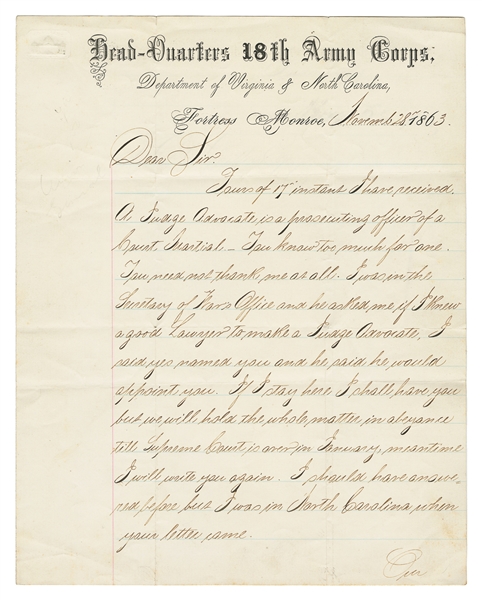 Head-Quarters 18th Army Corps,
Department of Virginia & North Carolina,
Fortress Monroe, November 28th 1863.
Dear Sir.
Yours of 17" instant I have received.
A Judge Advocate is a prosecuting officer of a
Court Martial. - You know too much for one.
You need not thank me at all. I was in the
Secretary of War's Office and he asked me if I knew
a good Lawyer to make a Judge Advocate, I
said yes named you and he said he would
appoint you. If I stay here I shall have you
but we will hold the whole matter in abeyance
till Supreme Court is over in January, meantime
I will write you again. I should have answe-
red before but I was in North Carolina when
your letter came.
Our